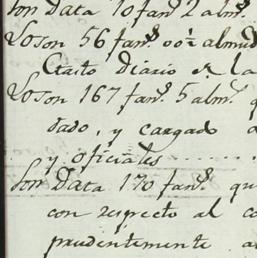 Son Data 10 fanˢ 2 almˢ.
Loson 56 fanˢ. 00½ almud
Gasto Diario en la
Loson 167 fanˢ. 5 almˢ. q
dado, y cargado a
y oficiales . . . . . . .
Son Data 170 fanˢ. qu
con respecto al co
prudentemente a